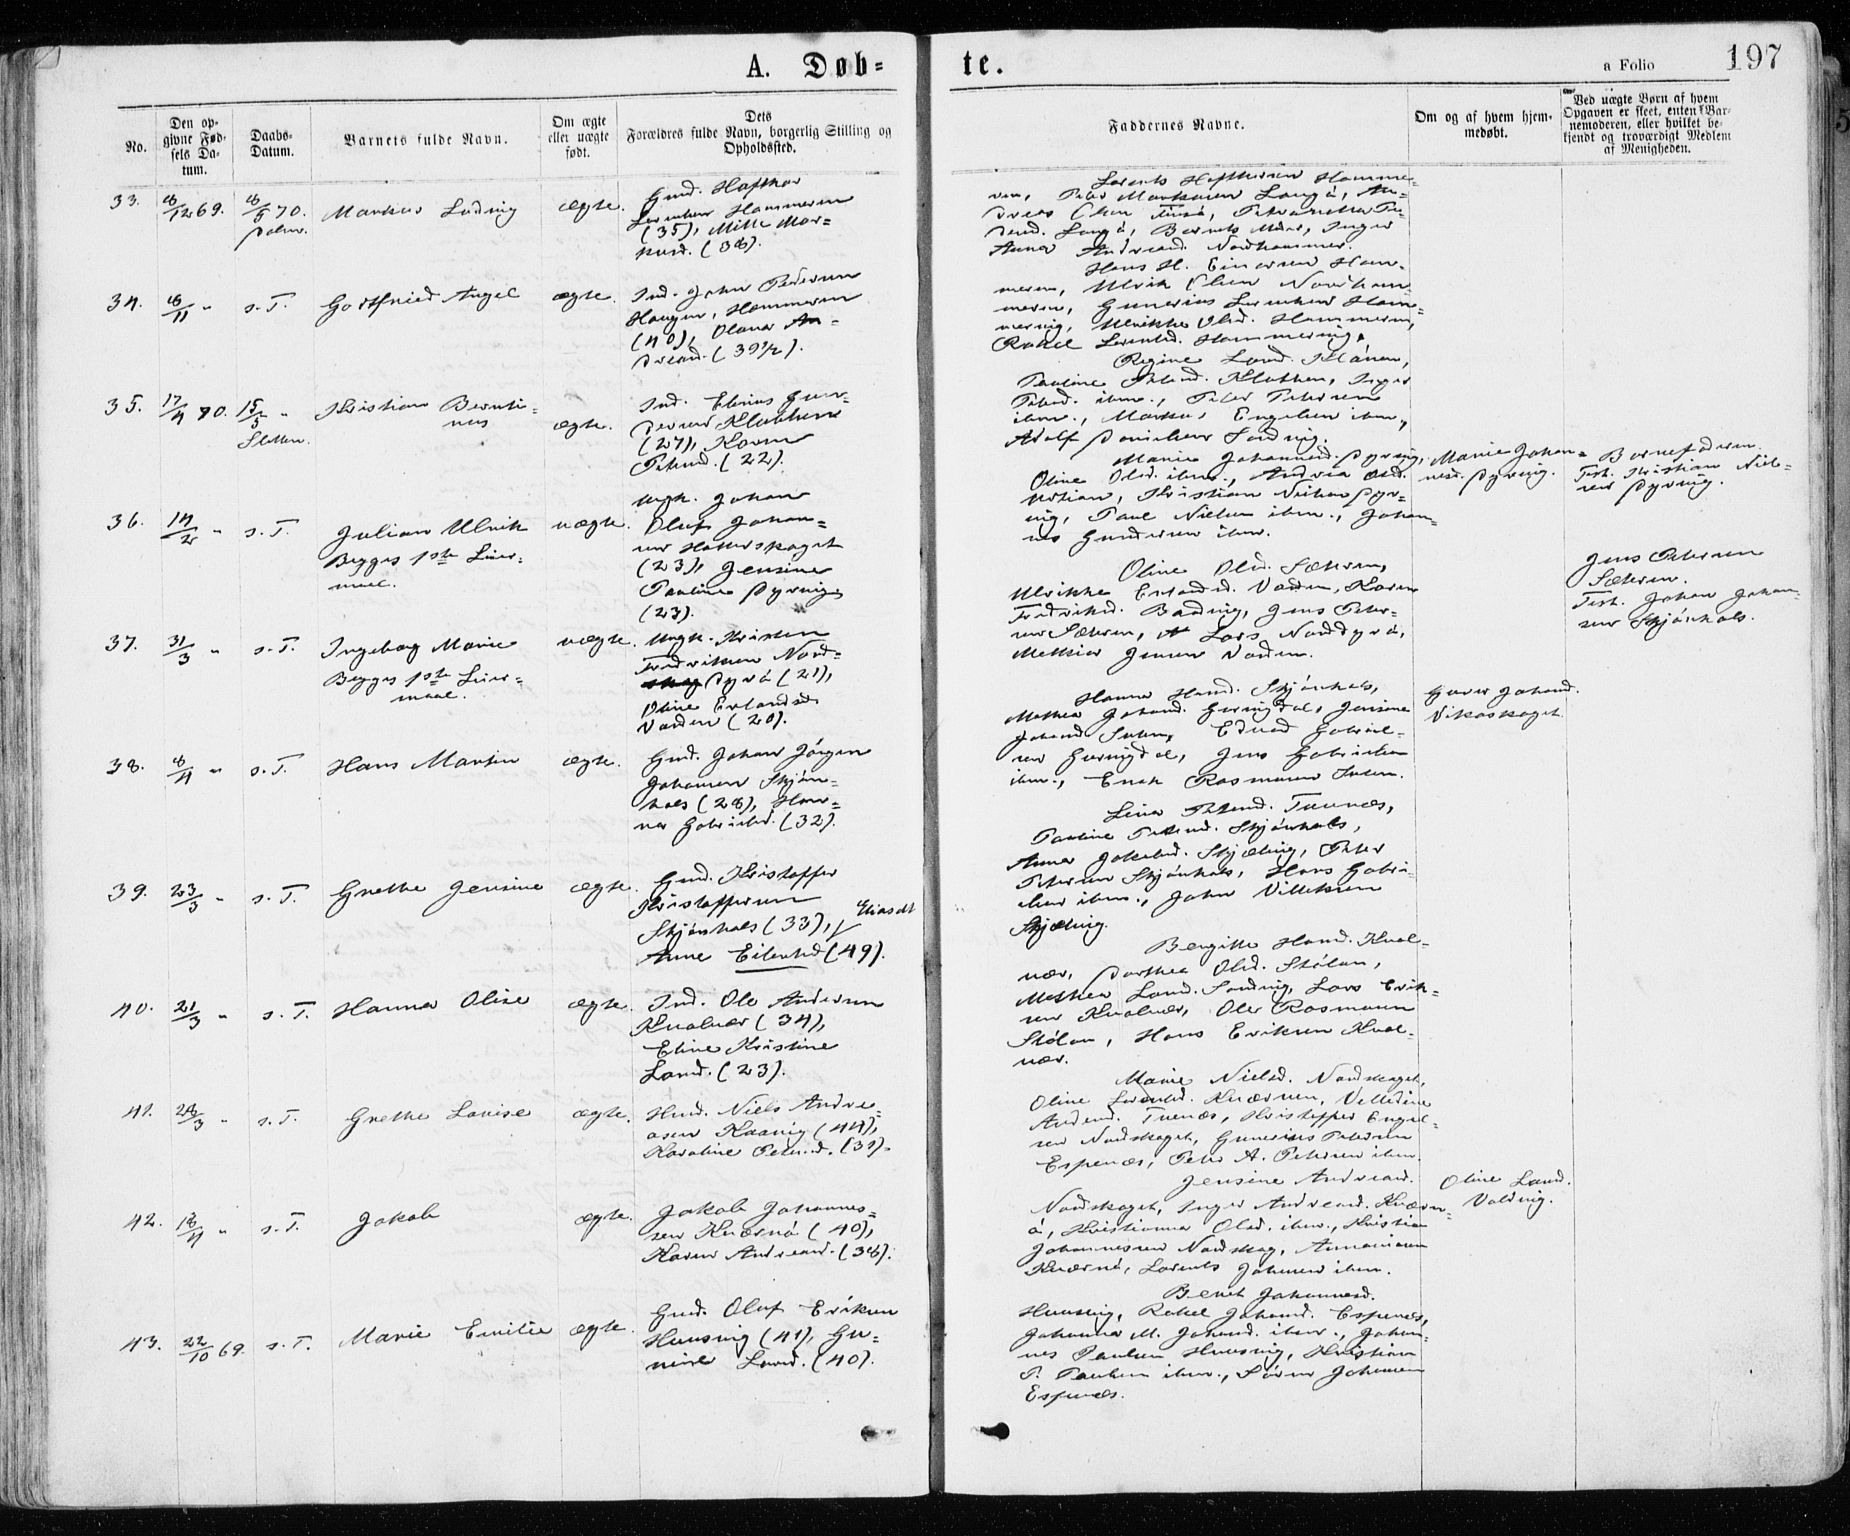 A. Døb-
te.
a Folio
197
No.
Den op-
givne Fød-
sels Da-
tum.
Daabs-
Datum.
Barnets fulde Navn.
Om ægte
eller uægte
født.
Dets
Forældres fulde Navn, borgerlig Stilling og
Opholdssted.
Faddernes Navne.
Om og af hvem hjem-
medøbt.
Ved uægte Børn af hvem
Opgaven er skeet, enten Bar-
nemoderen, eller hvilket be-
kjendt og troværdigt Medlem
af Menigheden.
33. 8/12 69. 8/5 70. Markus Ludvig ægte. Gmd. Hafthor
(35), Mille Mar-
kusd. (38).
Peter Markusen
Barnets Moder, Inger
Anna Andreasd. Nordhammer.
34. 8/11 " s. T. Gottfried Angel ægte. Ind. John Pedersen
Haugen, Hammeren
(40), Olana An-
dreasd. (39 1/2).
Hans H. Einarsen Ham-
meren, Ulrik Olsen Nordham-
meren, Gunerius Lorentsen Ham-
mervig, Ulrikke Olsd. Hammeren,
Rakel Lorentsd. Hammervig.
35. 17/4 70. 15/5 " Kristian Bernti-
nus
Sletten.
ægte.
Ind. Elenius Gun-
dersen Klakken
(27), Karen
Petersd. (22).
Pauline Petersd. Klakken, Inger
Petersd. ibm., Peter Petersen
ibm., Markus Engelsen ibm.,
Adolf Danielsen Sandvig.
36. 14/2 " s. T. Julian Ulrik uægte.
Begges 1ste Leier-
maal.
Ungk. Johan
Oluf Johan-
sen Hatterskaget
(23), Jensine
Pauline Dyrvig
(23).
Marie Johannesd. Dyrvig,
Oline Olsd. ibm., Andrea Olsd.
Kristian Nielsen Dyr-
vig, Paul Nielsen ibm., Johan-
nes Gundersen ibm.
Marie Johan-
nesd. Dyrvig.
Barnefaderen.
Test. Kristian Niel-
sen Dyrvig.
37. 31/3 " s. T. Ingeborg Marie uægte.
Begges 1ste Leier-
maal.
Ungk. Kristen
Fredriksen Nord-
Dyrö (21),
Oline Erlandsd.
Vadsen (20).
Oline Olsd. Sætren,
Ulrikke Erlandsd. Vadsen, Karen
Fredriksd. Badnvig, Jens Peter-
sen Sætren, Lars Norddyrö,
Mathias Jensen Vadsen.
Jens Petersen
Sætren.
Test. Johan Johan-
sen Skjönhals.
38. 8/4 " s. T. Hans Martin ægte. Gmd. Johan Jörgen
Johansen Skjön-
hals (28), Han-
na Gabrielsd. (32).
Hanna Hansd. Skjönhals,
Mathea Johansd. Gurvigdal, Jensine
Edvard Gabriel-
sen Gurvigdal, Jens Gabrielsen
ibm., Enok Rasmussen
Johansd.
Vikaskaget
39. 23/3 " s. T. Grethe Jensine ægte. Gmd. Kristoffer
Kristoffersen
Skjönhals (33), Eliasdt
Anne Eilertsd (49).
Lina Petersd. Tuenæs,
Pauline Petersd. Skjönhals,
Anna Jakobsd. Skjælvig, Peter
Petersen Skjönhals, Hans Gabri-
elsen ibm., John Villeksen
Skjælvig.
40. 21/3 " s. T. Hanna Olise ægte. Ind. Ole Andersen
Kvalvær (34),
Eline Kristine
Larsd. (23).
Bergitte Hansd. Kval-
vær, Dorthea Olsd. Stölan,
Mathea Larsd. Sandvig, Lars Erik-
sen Kvalvær, Ole Rasmussen
Stölan, Hans Eriksen Kval-
vær.
41. 28/3 " s. T. Grethe Lovise ægte. Hmd. Niels Andre-
asen Kaavig (44),
Karoline Petersd. (39).
Marie Nielsd. Nordskaget,
Oline Lorentsd. Knærnen,
Andersd. Tuenæs, Kristoffer Engel-
sen Nordskaget, Gunerius Petersen
Espenæs, Peter A. Petersen ibm.
42. 18/4 " s. T. Jakob ægte. Jakob Johannes-
sen Knærnö (40),
Karen Andreasd. (38).
Jensine Andreasd.
Nordskaget, Inger Andreasd. Knærn-
ö, Kristianna Olsd. ibm., Kristian
Johannessen Nordskag,
Knærnö, Lorents Johansen ibm.
Oline Larsd.
Valdvig.
43. 22/10 69. s. T. Marie Emilie ægte. Gmd. Oluf Eriksen
Hunsvig (41), Gu-
nild Larsd. (40).
Beret Johannesd.
Hunsvig, Rakel Johansd. Espenæs,
Johanna M. Johansd. ibm., Johan-
nes Paulsen Hunsvig, Kristian
P. Paulsen ibm., Sören Johansen
Espenæs.